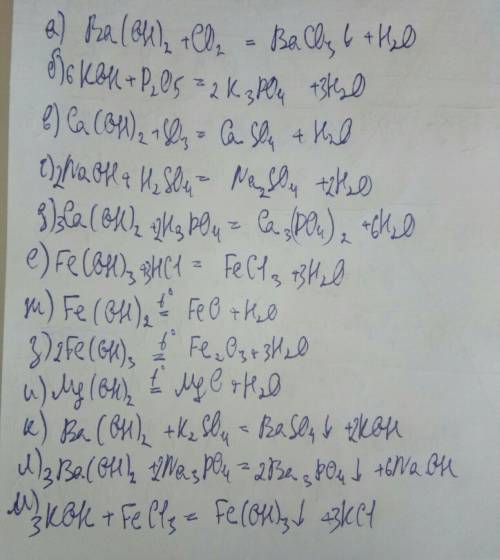 а) Ba(OH)2 + CO2 = BaCO3↓ + H2O
б) 6KOH + P2O5 = 2K3PO4 + 3H2O
в) Ca(OH)2 + SO3 = CaSO4 + H2O
г) 2NaOH + H2SO4 = Na2SO4 + 2H2O
д) 3Ca(OH)2 + 2H3PO4 = Ca3(PO4)2 + 6H2O
е) Fe(OH)3 + 3HCl = FeCl3 + 3H2O
ж) Fe(OH)2 t°= FeO + H2O
з) 2Fe(OH)3 t°= Fe2O3 + 3H2O
и) Mg(OH)2 t°= MgO + H2O
к) Ba(OH)2 + K2SO4 = BaSO4↓ + 2KOH
л) 3Ba(OH)2 + 2Na3PO4 = 2Ba3PO4↓ + 6NaOH
м) 3KOH + FeCl3 = Fe(OH)3↓ + 3KCl